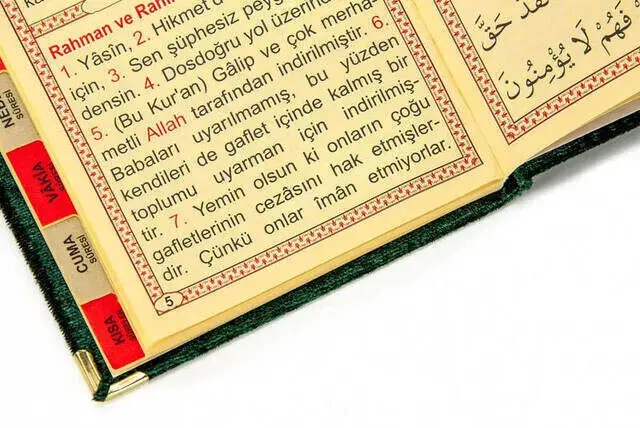 Rahman ve
1. Yâsîn, 2. Hikmet
için, 3. Sen şüphesiz
densin. 4. Dosdoğru yol üzerinde
5. (Bu Kur'an) Gâlip ve çok merha-
metli Allah tarafından indirilmiştir. 6.
Babaları uyarılmamış, bu yüzden
kendileri de gaflet içinde kalmış bir
toplumu uyarman için indirilmiş-
tir. 7. Yemin olsun ki onların çoğu
gafletlerinin cezâsını hak etmişler-
dir. Çünkü onlar îmân etmiyorlar.
5
حَقَّ
فَهُمْ لَا يُؤْمِنُونَ
SÛRESİ
VÂKIA
CUMA
SÛRESİ
KISA